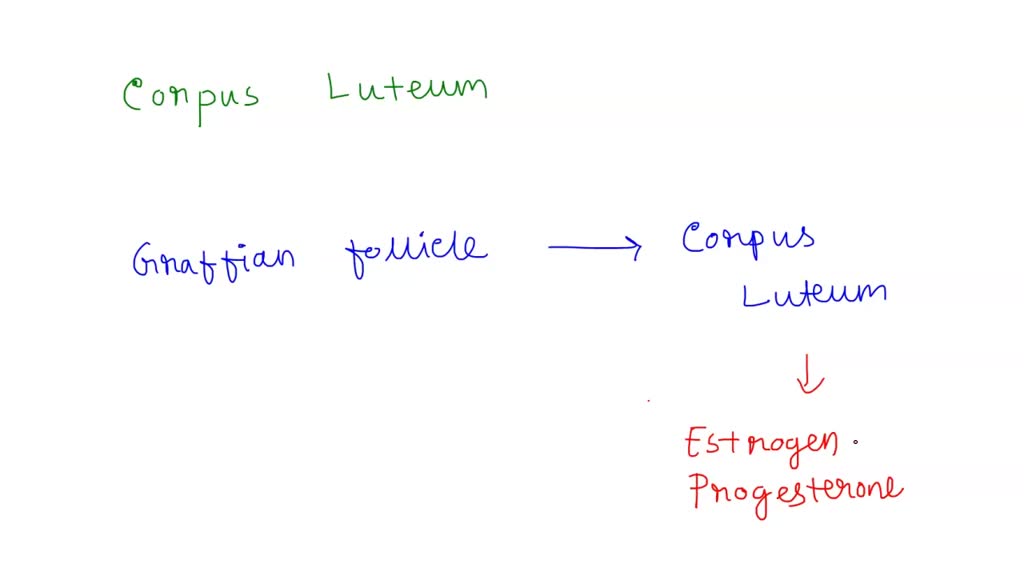 Corpus Luteum
Graffian follicle → Corpus
Luteum
↓
Estrogen
Progesterone